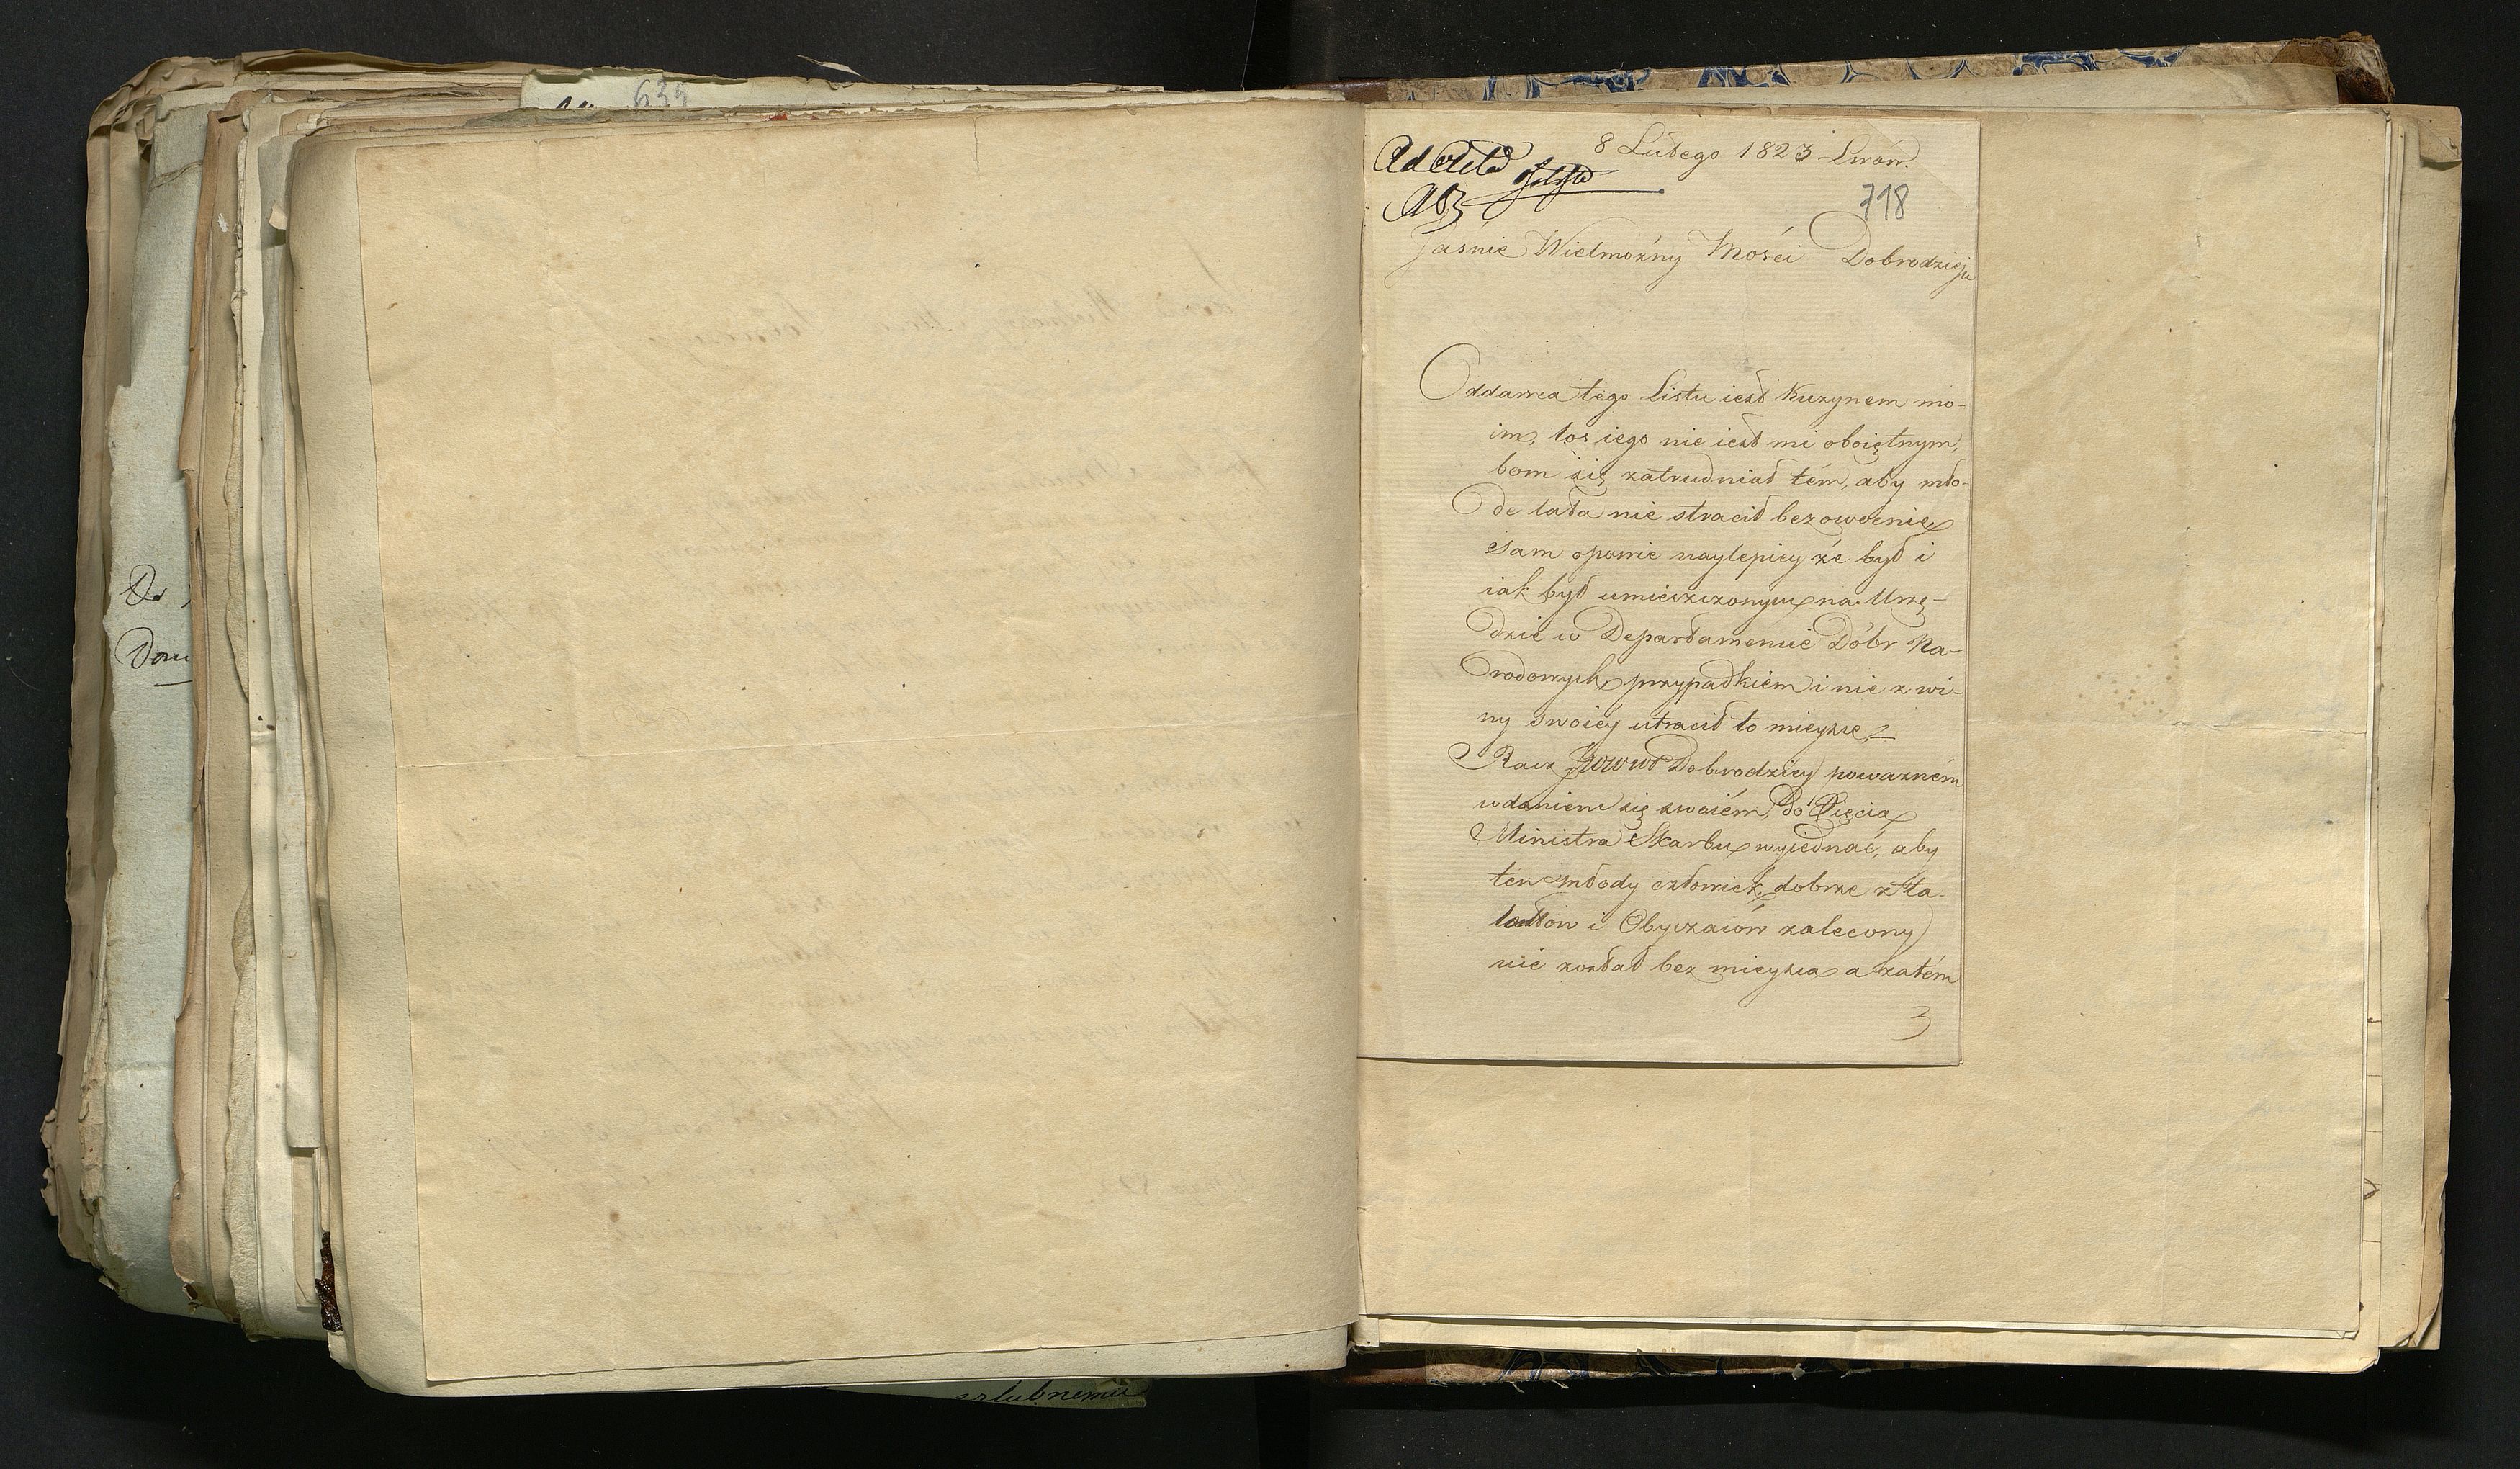 635
Do
Dom
szlubnemu
8 Lutego 1823 Lwów.
Ad Acta
718
Jaśnie Wielmożny Mości Dobrodzieju
Oddawca tego Listu iest Kuzynem mo-
im, los iego nie iest mi oboiętnym,
bom się zatrudniał tém, aby mło-
de lata nie stracił bezowocnie
sam opowie naylepiey że był i
iak był umieszczonym na Urzę-
dzie w Departamencie Dóbr Na-
rodowych przypadkiem i nie z wi-
ny swoiéy utracił to mieysce,
Racz JWWM Dobrodziey poważném
wdaniem się swoiém, do Xięcia
Ministra Skarbu wyiednać, aby
ten młody człowiek, dobrze z ta-
lentów i Obyczaiów zalecony
nie został bez mieysca a zatém
3